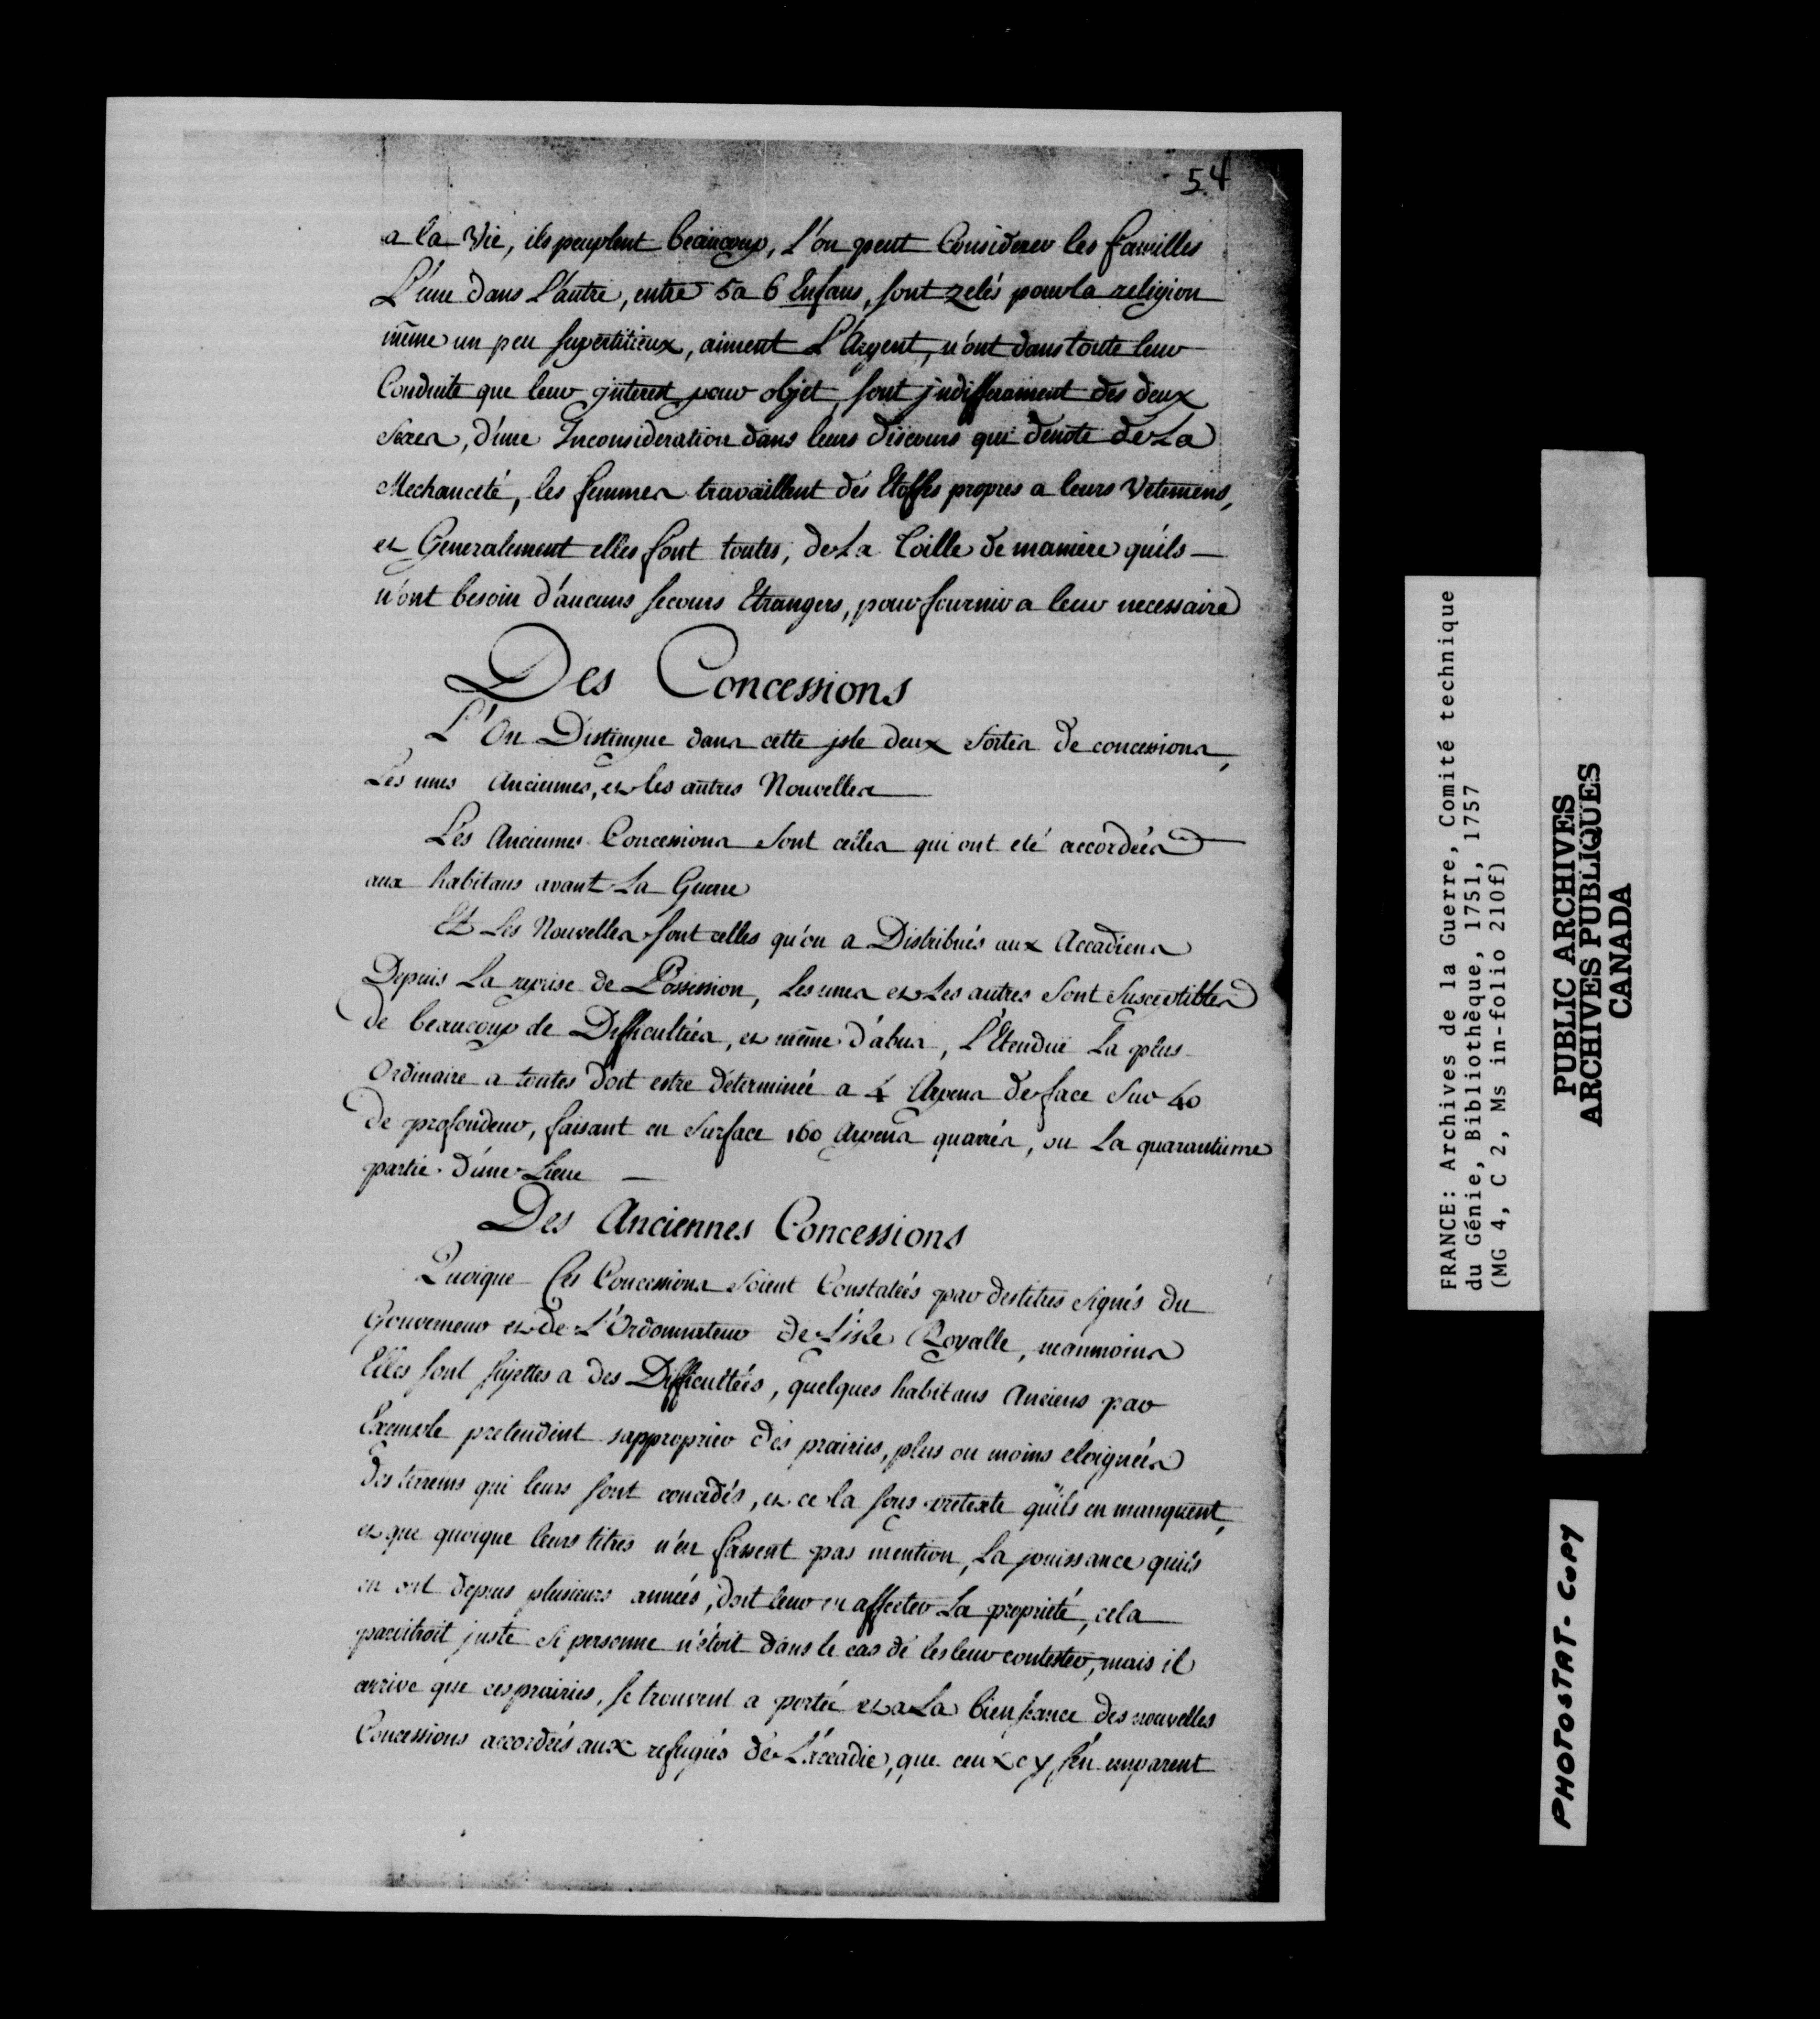 54
a la Vie, ils peuplent beaucoup, L'on peut Considerer les familles
L'une dans L'autre, entre 5 a 6 Enfans, sont zelés pour la religion
même un peu supertitieux, aiment L'Argent, n'ont dans toute leur
Conduite que leur jnterest pour objet, sont jndifferament des deux
Sexes, d'une Inconsideration dans leurs discours qui denote de La
Mechanceté, les femmes travaillent dés Etoffes propres a leurs Vetemens,
et Generalement elles font toutes, de La Toille de maniere qu'ils
n'ont besoin d'aucuns secours Etrangers, pour fournir a leur necessaire
Des Concessions
L'On Distingue dans cette jsle deux Sortes de concessions,
Les unes Anciennes, et les autres Nouvelles
Les Anciennes Concessions Sont celles qui ont eté accordées
aux habitans avant La Guerre
Et Les Nouvelles sont celles qu'on a Distribués aux Accadiens
Depuis La reprise de Possession, Les unes et Les autres Sont Susceptibles
de beaucoup de Difficultées, et même d'abus, L'Etenduë La plus
Ordinaire a toutes doit estre déterminée a 4 Arpens de face Sur 40
de profondeur, faisant en Surface 160 Arpens quarrés, ou La quarantieme
partie d'une Lieue
Des Anciennes Concessions
Quoique Ces Concessions Soient Constatées par des titres Signés du
Gouverneur et de L'Ordonnateur de L'isle Royalle, neanmoins
Elles sont sujettes a des Difficultées, quelques habitans Anciens par
Exemple pretendent sapproprier des prairies, plus ou moins eloignées
des terreins qui leurs sont concedés, et ce la sous pretexte qu'ils en manquent,
et que quoique leurs titres n'en fassent pas mention, La jouissance qu'ils
en ont depuis plusieurs années, doit leur en affecter La proprieté, cela
paroitroit juste si personne n'étoit dans le cas de les leur contester, mais il
arrive que ces prairies, se trouvent a portée et a La bienseance des nouvelles
Concessions accordées aux refugiés de L'accadie, que ceux cy s'en emparent
FRANCE: Archives de la Guerre, Comité technique
du Génie, Bibliothèque, 1751, 1757
(MG 4, C 2, Ms in-folio 210f)
PUBLIC ARCHIVES
ARCHIVES PUBLIQUES
CANADA
PHOTOSTAT-COPY